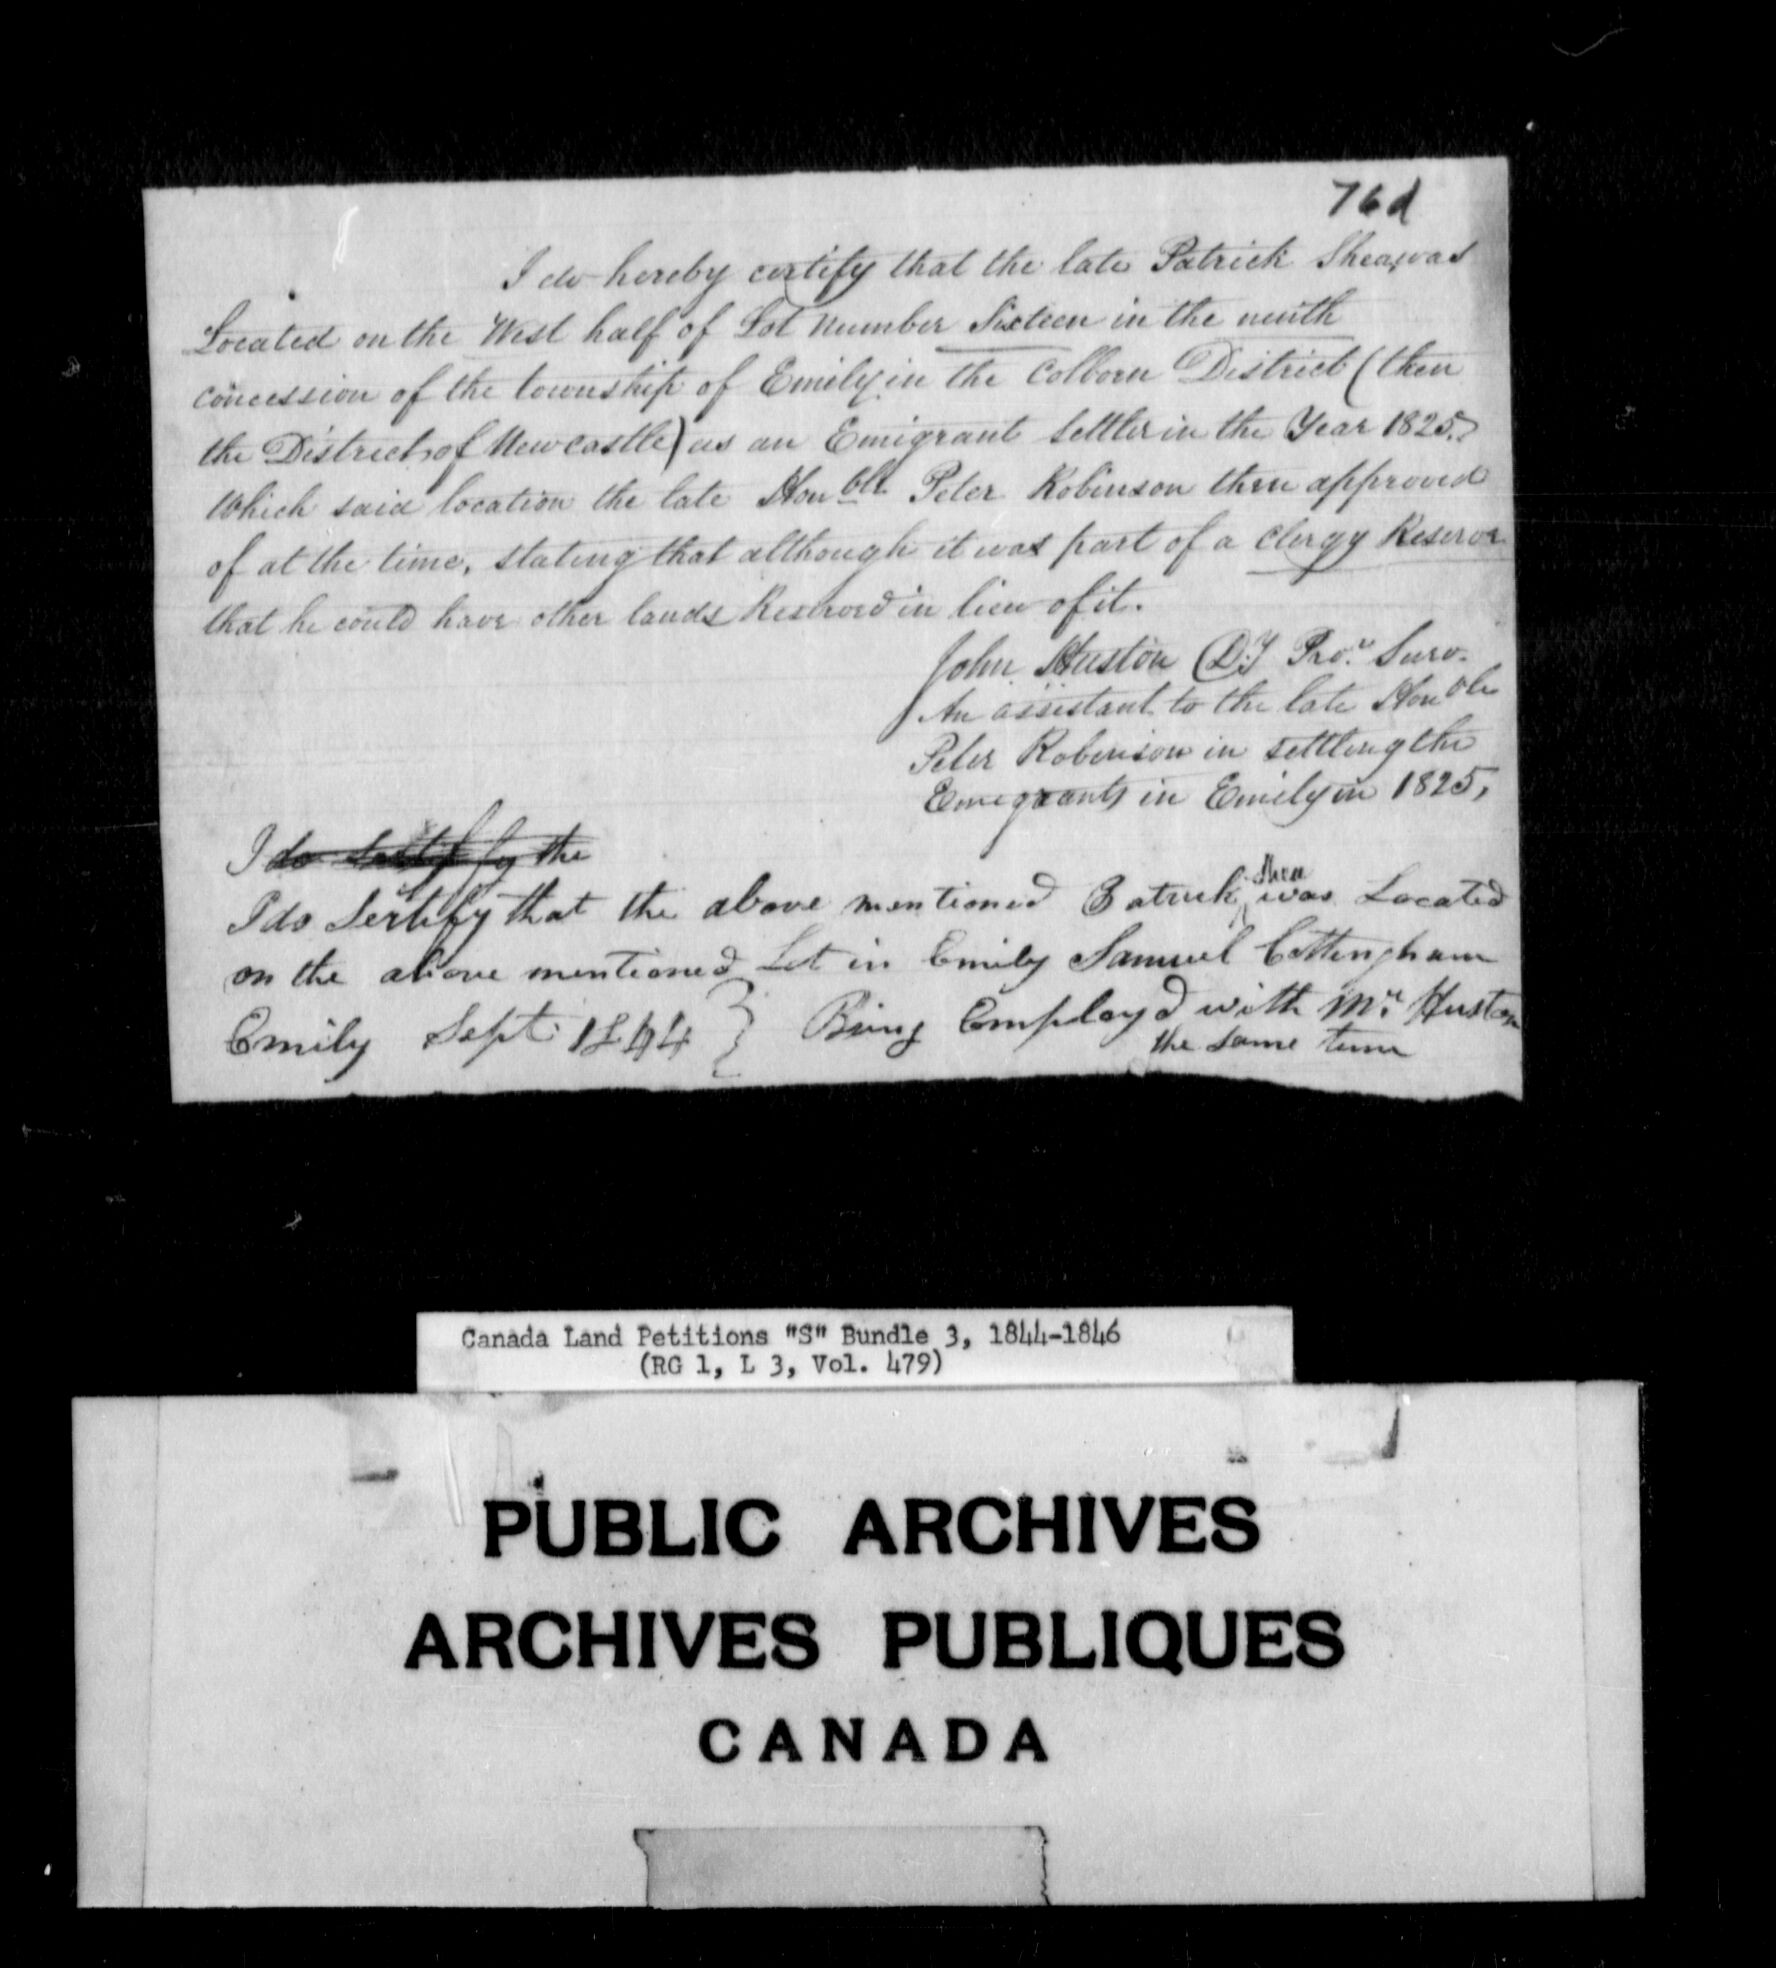 76d
I do hereby certify that the late Patrick Shea, was
Located on the West half of Lot number Sixteen in the ninth
concession of the township of Emily in the Colborn District (then
the District of Newcastle) as an Emigrant Settler in the Year 1825,
Which said location the late Honble Peter Robinson then approved
of at the time, stating that although it was part of a Clergy Reserve
that he could have other lands Reserved in lieu of it.
John Huston Dy Pror Surv.
An assistant to the late Honble
Peter Robinson in settling the
Emigrants in Emily in 1825,
I do Sertify the
I do Sertify that the above mentioned Patrick Shea was Located
on the above mentioned Lot in Emily Samuel Cottingham
Emily Sept 1844 } Being Employd with Mr Huston
the same time
Canada Land Petitions "S" Bundle 3, 1844-1846
(RG 1, L 3, Vol. 479)
PUBLIC ARCHIVES
ARCHIVES PUBLIQUES
CANADA